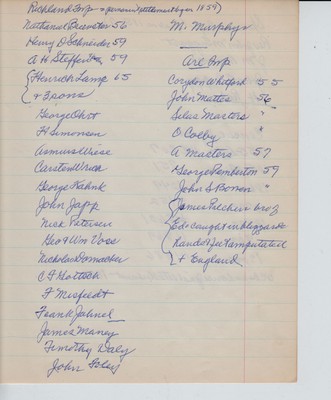 Richland Twp - permanent settlement began 1854)
Nathaniel Brewster 56
Henry D Schneider 59
A H Steffen 59
Henrich Lamp 65
+ 3 sons
George Ohrt
H Simonsen
Asmus Wiese
Carsten
George Hahnk
John Japp
Nick Petersen
Geo + Wm Voss
Nicholas Damacher
C F Gottsch
F Misfeldt
Frank Jahnel
James Maney
Timothy Daly
John Foley
M. Murphys
Twp
Corydon Whitford 55
John Mattes 56
Silas Masters "
O Colby
A Masters 57
George Pemberton 57
John S Bonen "
James Pilcher bro of
Ed caught in blizzard
hands + feet amputated
+ England